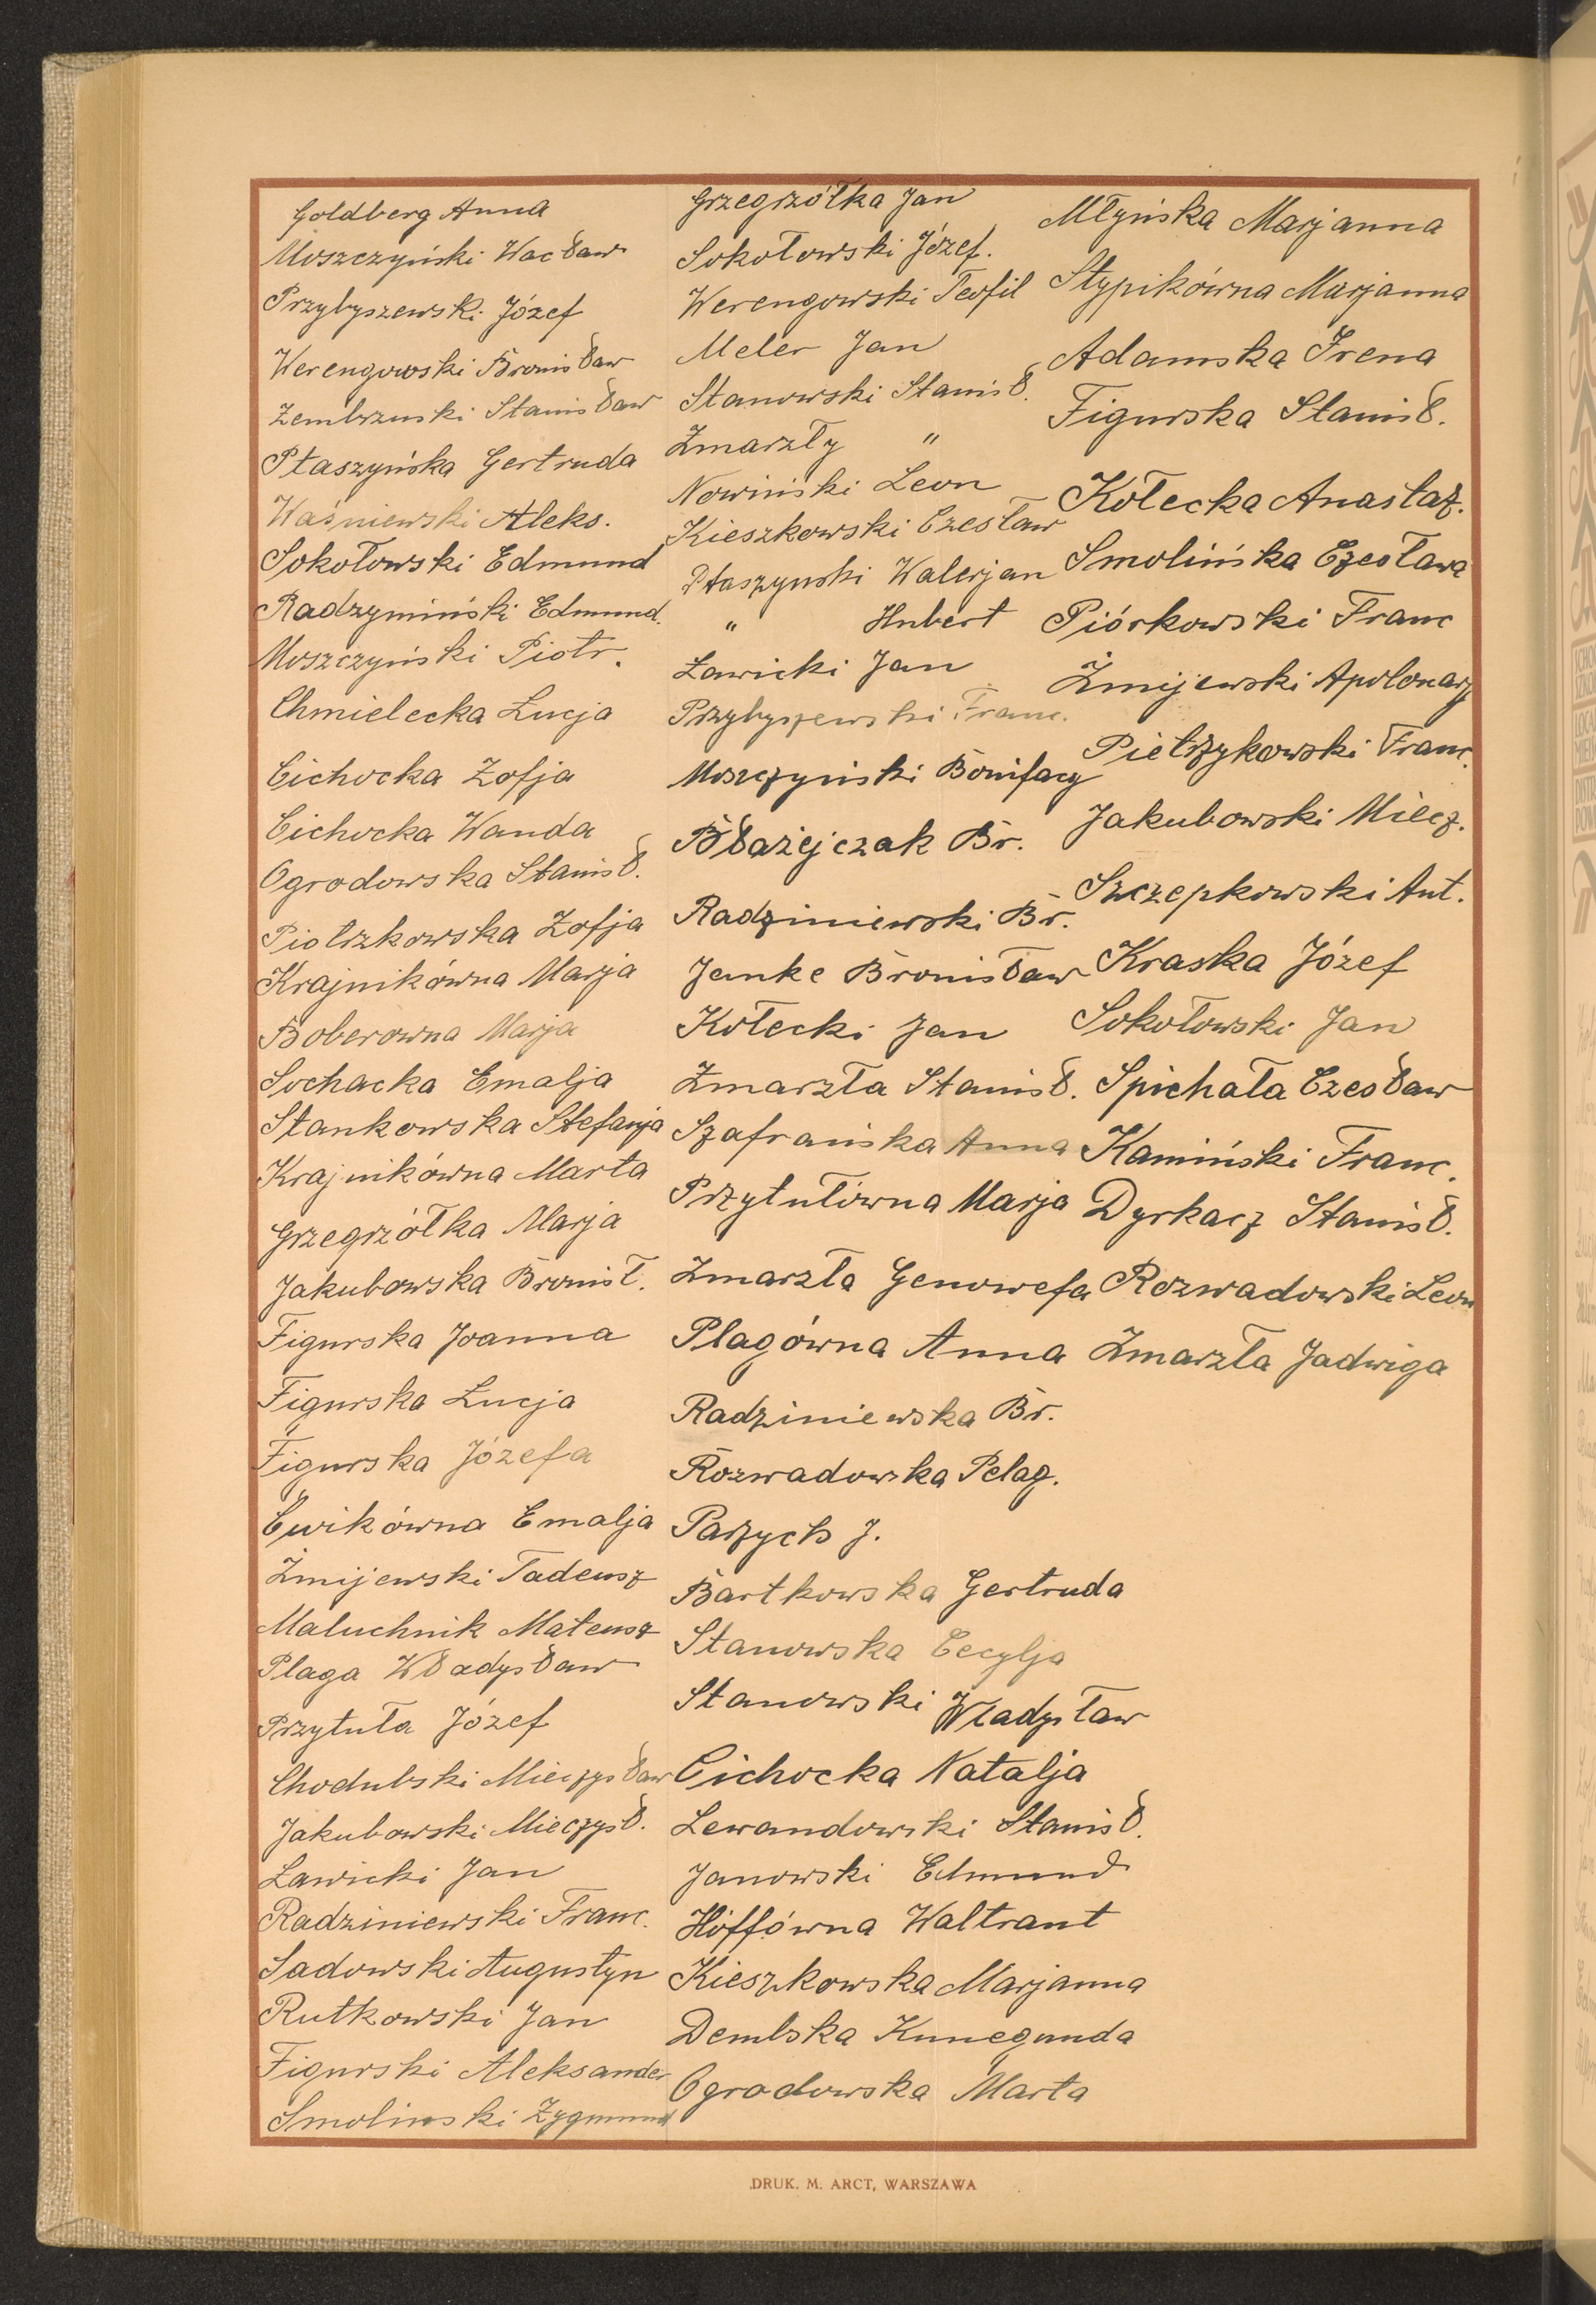 Goldberg Anna
Moszczyński Wacław
Przybyszewski Józef
Werengowski Bronisław
Zembrzuski Stanisław
Ptaszyńska Gertruda
Waśniewski Aleks.
Sokołowski Edmund
Radzymiński Edmund.
Moszczyński Piotr.
Chmielecka Łucja
Cichocka Zofja
Cichocka Wanda
Ogrodowska Stanisł.
Piotrzkowska Zofja
Krajnikówna Marja
Boberowna Marja
Sochacka Emalja
Stankowska Stefanja
Krajnikówna Marta
Grzegrzółka Marja
Jakubowska Bronisł.
Figurska Joanna
Figurska Łucja
Figurska Józefa
Ćwikówna Emalja
Żmijewski Tadeusz
Maluchnik Mateusz
Plaga Władysław
Przytuła Józef
Chodubski Mieczysław
Jakubowski Mieczysł.
Ławicki Jan
Radziniewski Franc.
Sadowski Augustyn
Rutkowski Jan
Figurski Aleksander
Smolinski Zygmund
Grzegrzółka Jan
Sokołowski Józef.
Werengowski Teofil
Meler Jan
Stanowski Stanisł.
Zmarzły "
Nowiński Leon
Kieszkowski Czesław
Ptaszynski Walerjan
" Hubert
Ławicki Jan
Przybyszewski Franc.
Moszczyński Bonifacy
Błażejczak Br.
Radziniewski Br.
Janke Bronisław
Kołecki Jan
Zmarzła Stanisł.
Szafrańska Anna
Przytulówna Marja
Zmarzła Genowefa
Plagówna Anna
Radziniewska Br.
Rozwadowska Pelag.
Parzych J.
Bartkowska Gertruda
Stanowska Cecylja
Stanowski Władysław
Cichocka Natalja
Lewandowski Stanisł.
Janowski Edmund
Höffówna Waltraut
Kieszkowska Marjanna
Dembska Kunegunda
Ogrodowska Marta
Młyńska Marjanna
Stypikówna Marjanna
Adamska Irena
Figurska Stanisł.
Kołecka Anastaz.
Smolińska Czesława
Piórkowski Franc
Żmijewski Apolonary
Pietrzykowski Franc.
Jakubowski Miecz.
Szczepkowski Ant.
Kraska Józef
Sokołowski Jan
Spichała Czesław
Kamiński Franc.
Dyrkacz Stanisł.
Rozwadowski Leon
Zmarzła Jadwiga
DRUK. M. ARCT, WARSZAWA